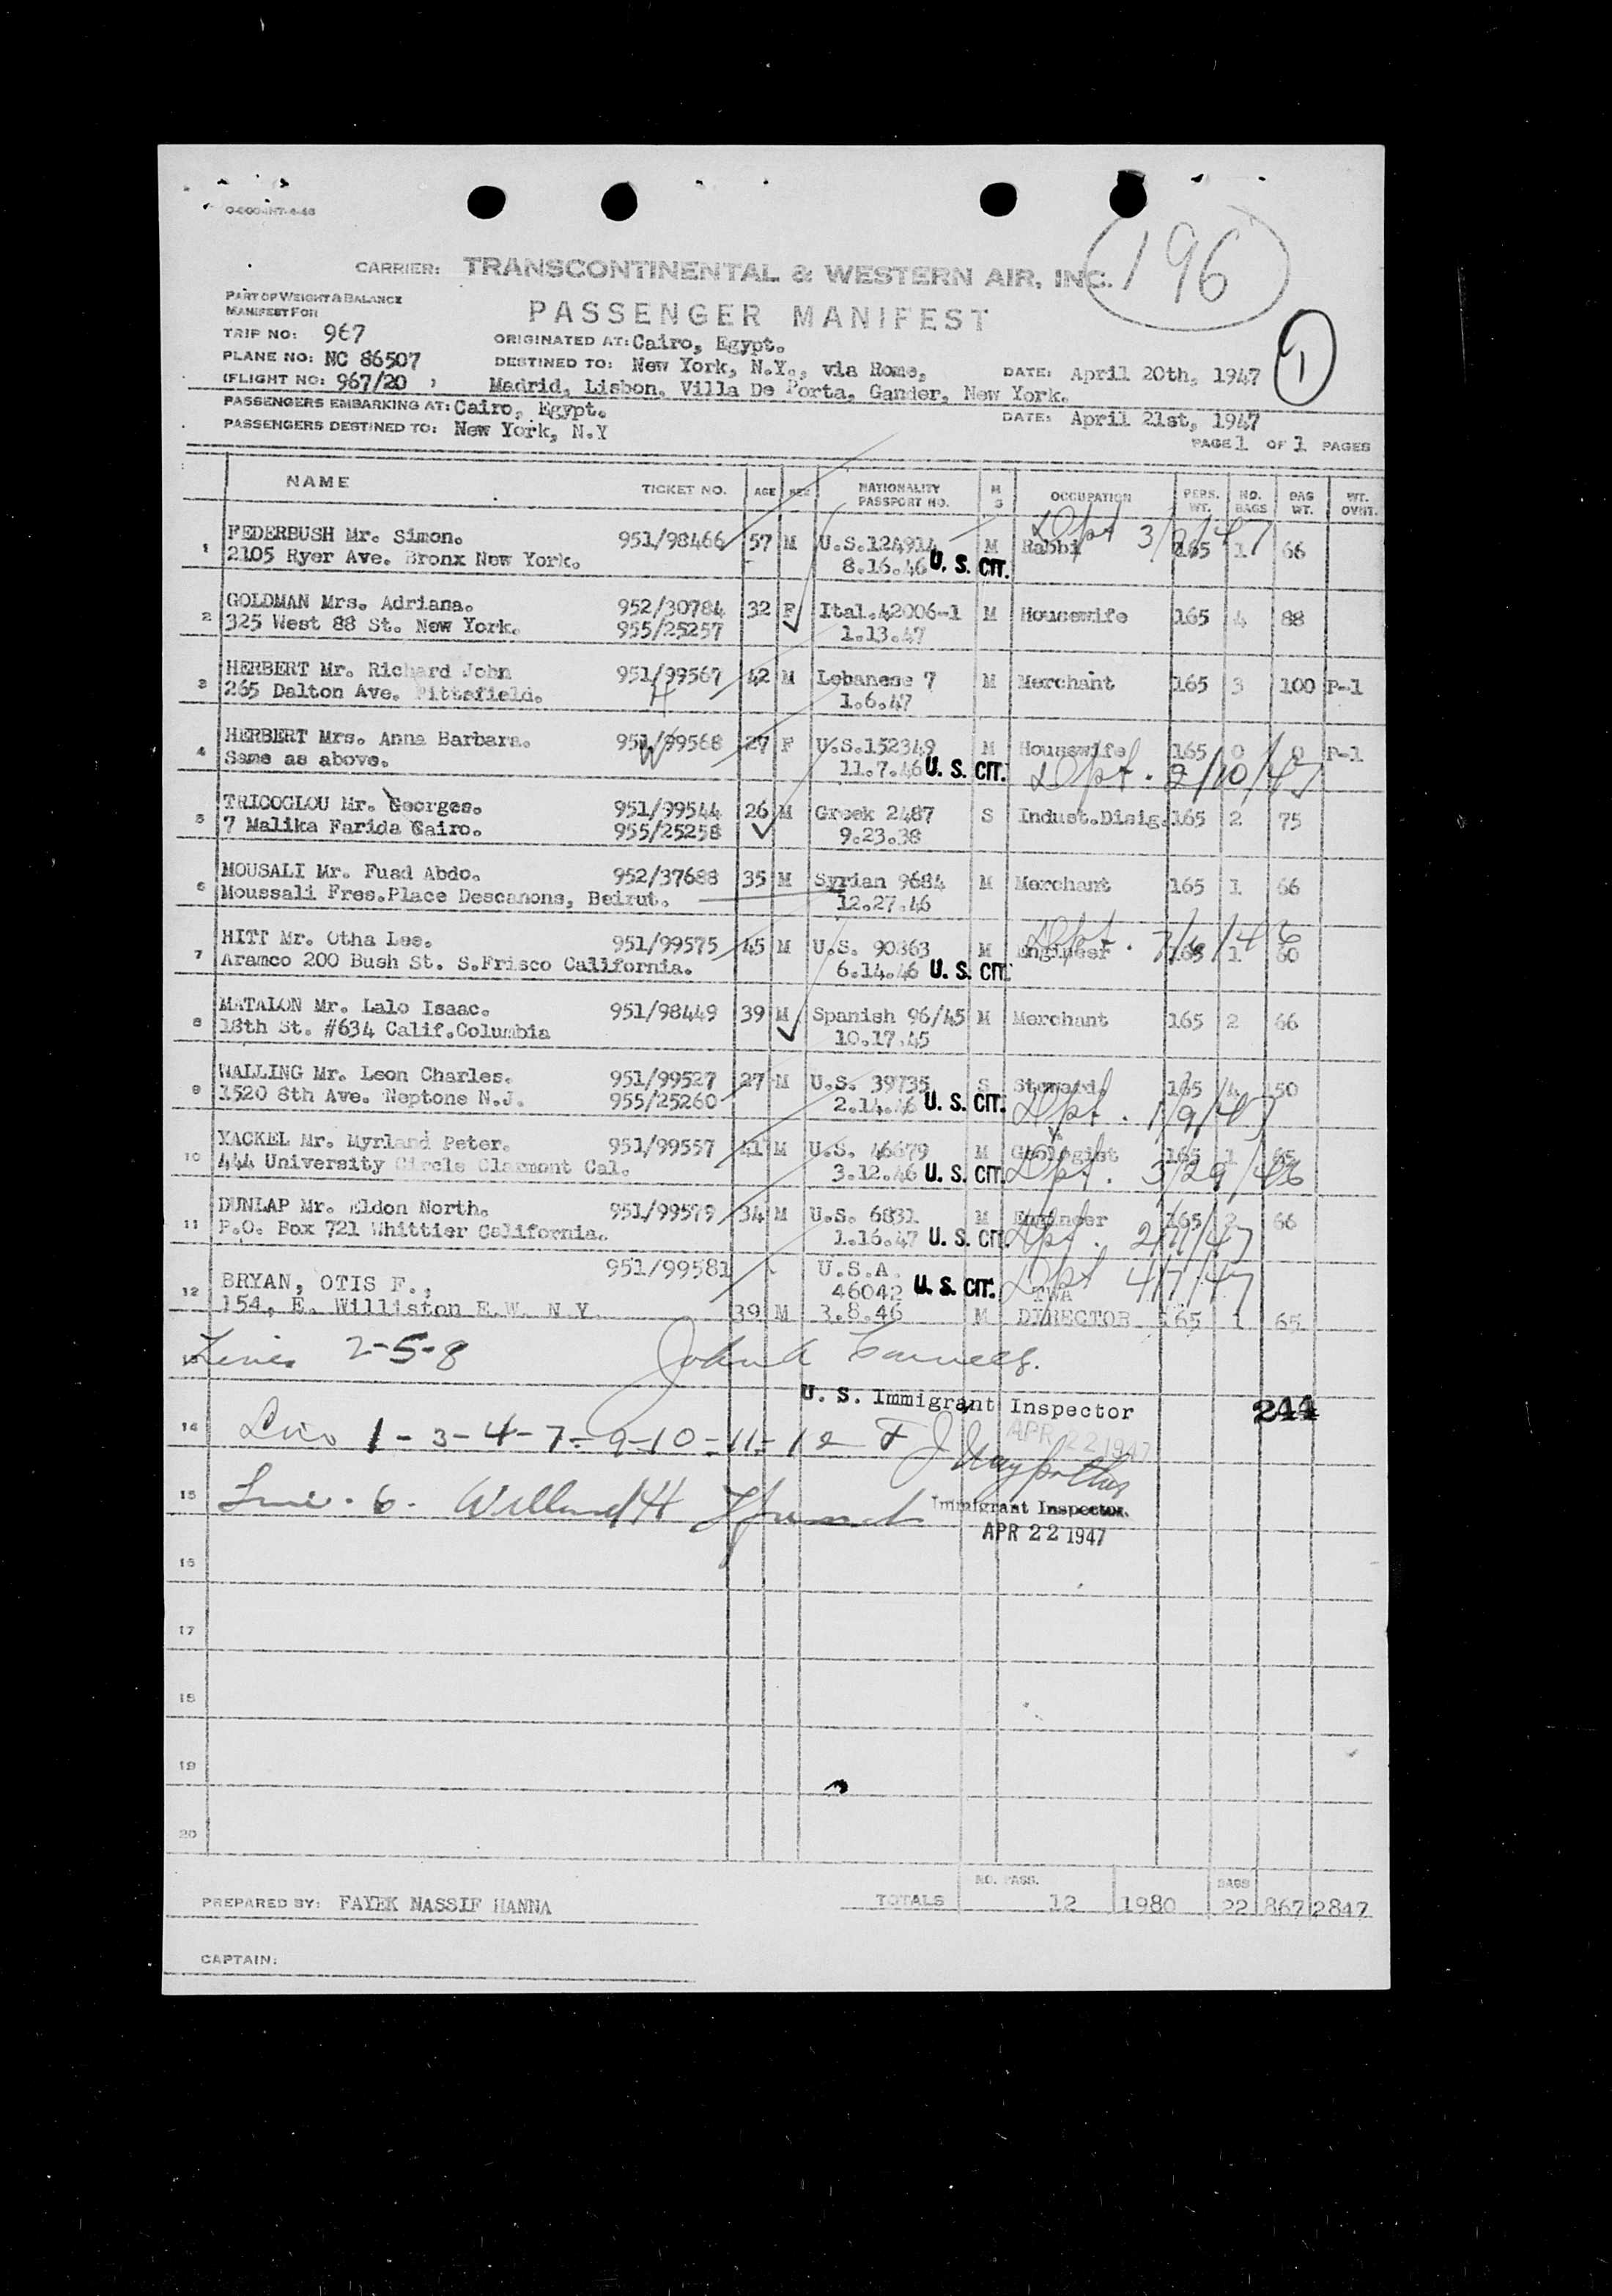 196
CARRIER: TRANSCONTINENTAL & WESTERN AIR, INC.
PART OF WEIGHT & BALANCE
MANIFEST FOR
PASSENGER MANIFEST
1
TRIP NO: 967
ORIGINATED AT: Cairo, Egypt.
PLANE NO: NC 86507
DESTINED TO: New York, N.Y., via Rome, DATE: April 20th, 1947
(FLIGHT NO: 967/20 ) Madrid, Lisbon, Villa De Porta, Gander, New York.
PASSENGERS EMBARKING AT: Cairo, Egypt. DATE: April 21st, 1947
PASSENGERS DESTINED TO: New York, N.Y
PAGE 1 OF 1 PAGES
NAME TICKET NO. AGE SEX NATIONALITY PASSPORT NO. M S OCCUPATION PERS. WT. NO. BAGS BAG WT. WT. OVHT.
1 FEDERBUSH Mr. Simon. 951/98466 57 M U.S.124914 M Rabbi 165 1 66
2105 Ryer Ave. Bronx New York. 8.16.46 U. S. CIT.
2 GOLDMAN Mrs. Adriana. 952/30784 32 F Ital.42006-1 M Housewife 165 4 88
325 West 88 St. New York. 955/25257 1.13.47
3 HERBERT Mr. Richard John 951/99567 42 M Lebanese 7 M Merchant 165 3 100 P-1
265 Dalton Ave. Pittsfield. 1.6.47
4 HERBERT Mrs. Anna Barbara. 951/99568 27 F U.S.152349 M Housewife 165 0 0 P-1
Same as above. 11.7.46 U. S. CIT. Dept. 2/10/47
5 TRICOGLOU Mr. Georges. 951/99544 26 M Greek 2487 S Indust.Disig. 165 2 75
7 Malika Farida Cairo. 955/25258 9.23.38
6 MOUSALI Mr. Fuad Abdo. 952/37688 35 M Syrian 9684 M Merchant 165 1 66
Moussali Fres.Place Descanons, Beirut. 12.27.46
7 HITT Mr. Otha Lee. 951/99575 45 M U.S. 90363 M Engineer 165 1 60
Aramco 200 Bush St. S.Frisco California. 6.14.46 U. S. CIT.
8 MATALON Mr. Lalo Isaac. 951/98449 39 M Spanish 96/45 M Merchant 165 2 66
18th St. #634 Calif.Columbia 10.17.45
9 WALLING Mr. Leon Charles. 951/99527 27 M U.S. 39735 S Steward 165 4 50
1520 8th Ave. Neptone N.J. 955/25260 2.14.46 U. S. CIT. Dept. 1/9/47
10 YACKEL Mr. Myrland Peter. 951/99557 41 M U.S. 46679 M Geologist 165 1 65
444 University Circle Claemont Cal. 3.12.46 U. S. CIT. Dept. 3/29/46
11 DUNLAP Mr. Eldon North. 951/99579 34 M U.S. 6831 M Engineer 165 2 66
P.O. Box 721 Whittier California. 1.16.47 U. S. CIT. Dept. 2/11/47
951/99581 U.S.A. Dept 4/7/47
12 BRYAN, OTIS F., 46042 U. S. CIT. TWA
154, E. Williston E.W. N.Y. 39 M 3.8.46 M DIRECTOR 165 1 65
Lines 2-5-8 John A
U. S. Immigrant Inspector 244
APR 22 1947
14 Line 1-3-4-7-9-10-11-12
15 Line. 6.
Immigrant Inspector.
APR 22 1947
16
17
18
19
20
NO. PASS. BAGS
PREPARED BY: FAYEK NASSIF HANNA TOTALS 12 1980 22 867 2847
CAPTAIN: